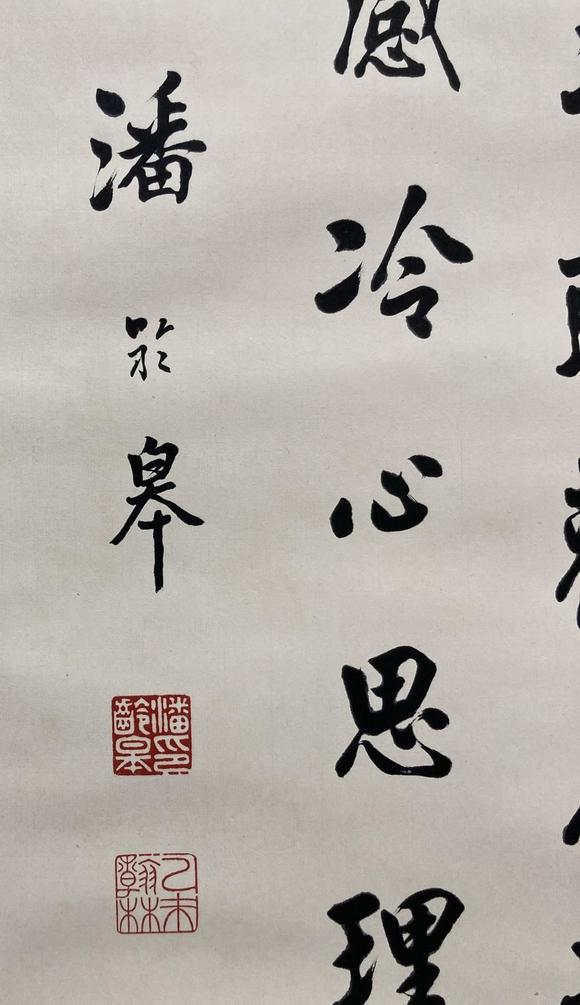 感冷心思理
潘齡皋
潘印齡皋
乙未翰林